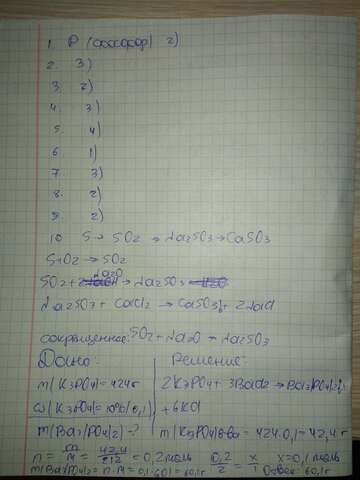 1. P (фосфор) 2)
2. 3)
3. 2)
4. 3)
5. 4)
6 1)
7 3)
8. 2)
9. 2)
10 S → SO2 → Na2SO3 → CaSO3
S+O2 → SO2
SO2 + Na2O → Na2SO3
Na2SO3 + CaCl2 → CaSO3↓ + 2NaCl
сокращенное: SO2 + Na2O → Na2SO3
Дано: Решение:
m(K3PO4)=424г 2K3PO4 + 3BaCl2 → Ba3(PO4)2↓
ω(K3PO4)=10%(0,1) +6KCl
m(Ba3(PO4)2)-? m(K3PO4)в-ва = 424·0,1=42,4 г
n = m/M = 42,4/212 = 0,2 моль 0,2/2 = x/1 x=0,1 моль
m(Ba3(PO4)2= n·M = 0,1·601=60,1г Ответ: 60,1г